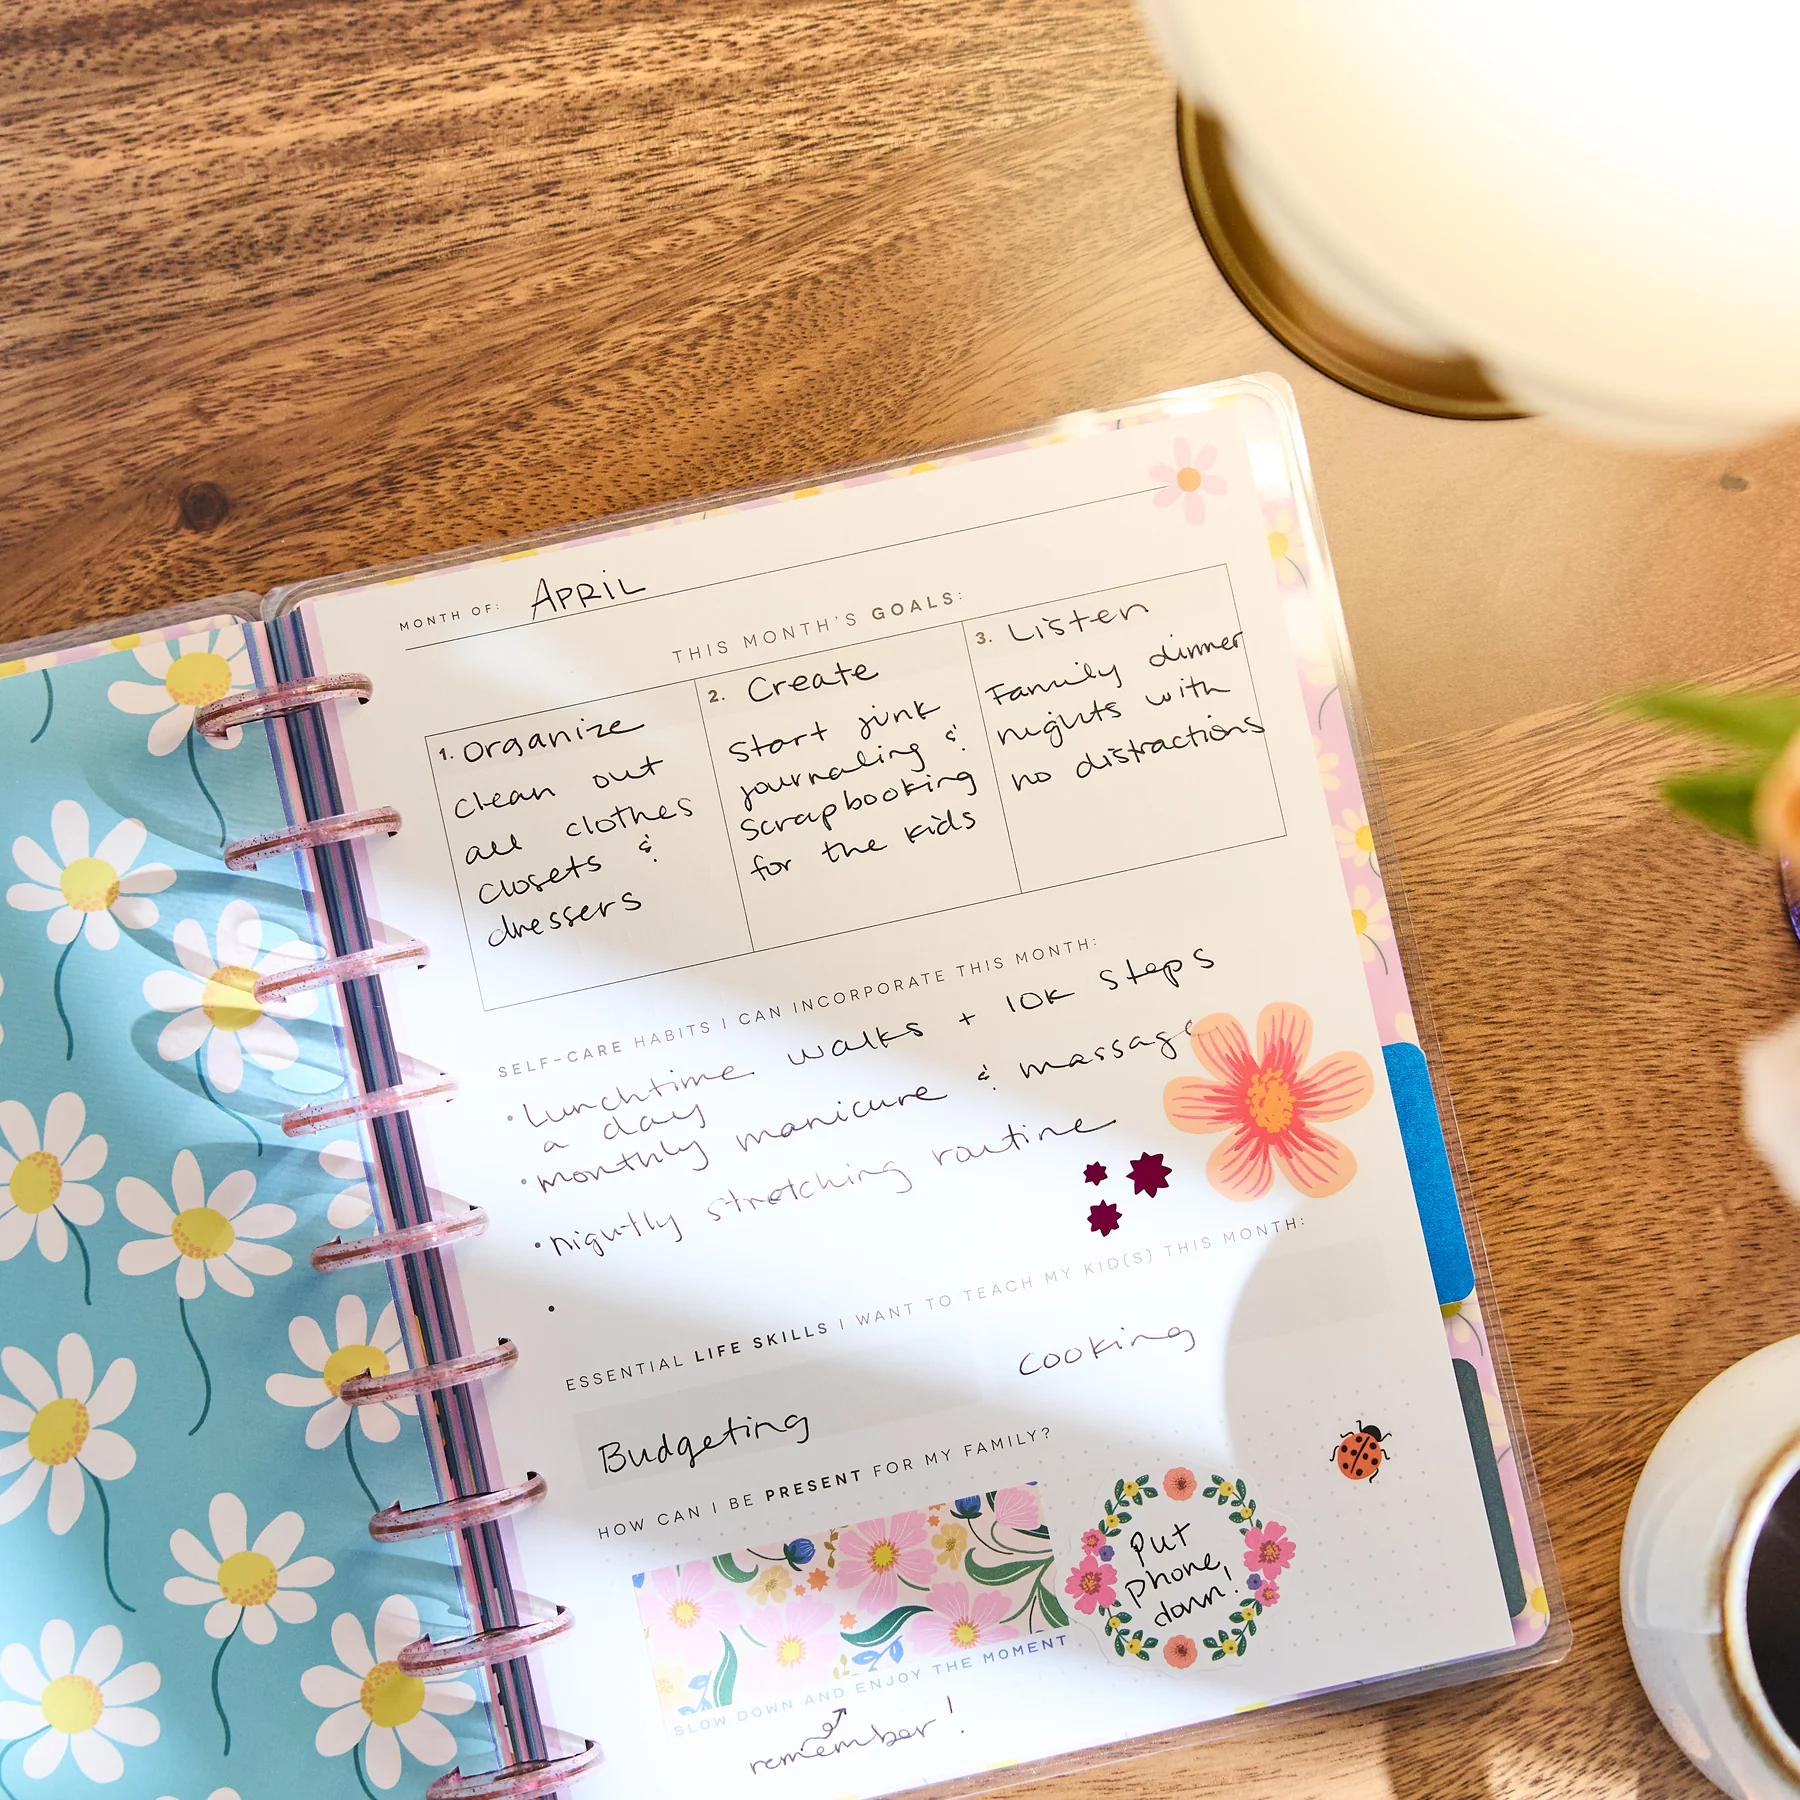 MONTH OF: APRIL
THIS MONTH'S GOALS:
1. Organize
clean out
all clothes
closets &
dressers
2. Create
Start junk
journaling &
Scrapbooking
for the kids
3. Listen
Family dinner
nights with
no distractions
SELF-CARE HABITS I CAN INCORPORATE THIS MONTH:
• Lunchtime walks + 10K steps
a day
• monthly manicure & massage
• nightly stretching routine
•
ESSENTIAL LIFE SKILLS I WANT TO TEACH MY KID(S) THIS MONTH:
Budgeting
Cooking
HOW CAN I BE PRESENT FOR MY FAMILY?
Put
phone
down!
SLOW DOWN AND ENJOY THE MOMENT
remember!